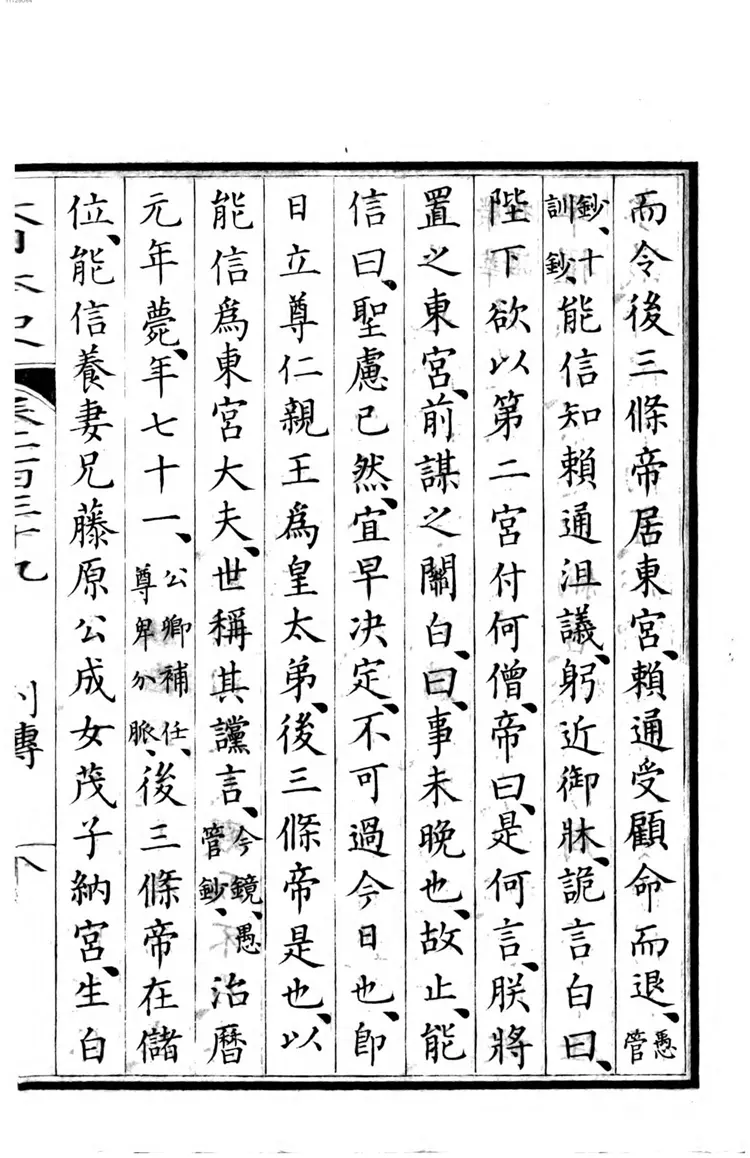 而令後三條帝居東宮、賴通受顧命而退、愚管
鈔、十訓鈔、能信知賴通沮議、躬近御牀、詭言白曰、
陛下欲以第二宮付何僧、帝曰、是何言、朕將
置之東宮、前謀之關白、曰、事未晚也、故止、能
信曰、聖慮已然、宜早決定、不可過今日也、卽
日立尊仁親王爲皇太弟、後三條帝是也、以
能信爲東宮大夫、世稱其讜言、今鏡、愚管鈔、治曆
元年薨、年七十一、公卿補任、尊卑分脈、後三條帝在儲
位、能信養妻兄藤原公成女茂子納宮、生白